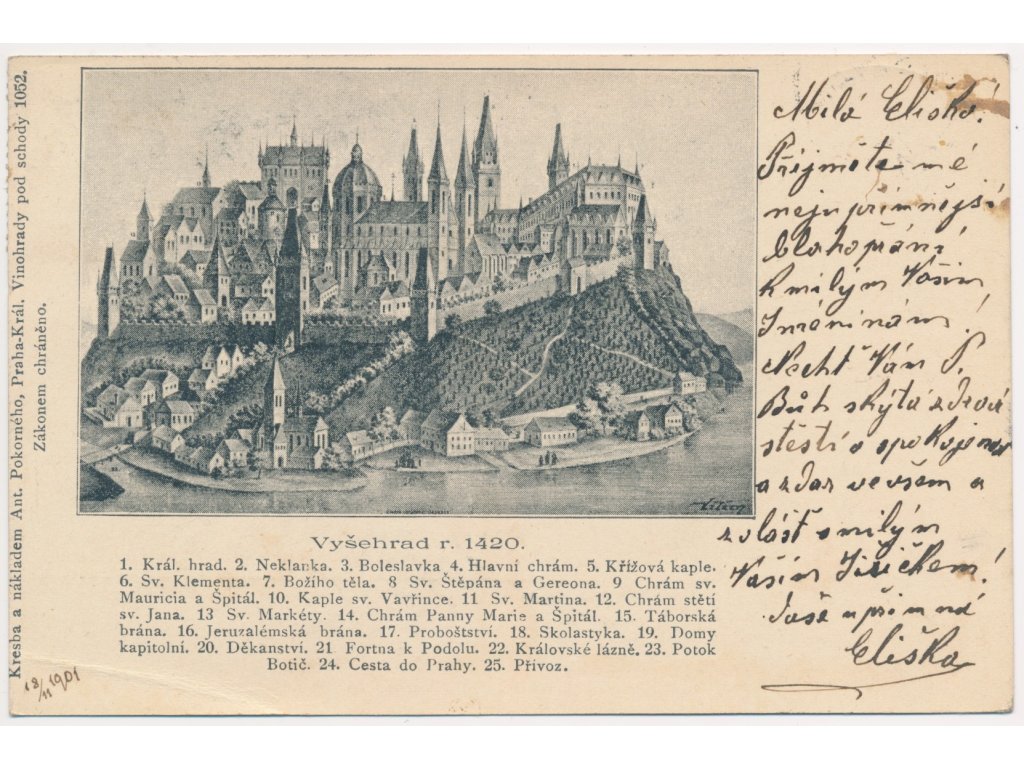 Kresba a nákladem Ant. Pokorného, Praha-Král. Vinohrady pod schody 1052.
Zákonem chráněno.
Vyšehrad r. 1420.
1. Král. hrad. 2. Neklanka. 3. Boleslavka 4. Hlavní chrám. 5. Křížová kaple.
6. Sv. Klementa. 7. Božího těla. 8 Sv. Štěpána a Gereona. 9 Chrám sv.
Mauricia a Špitál. 10. Kaple sv. Vavřince. 11 Sv. Martina. 12. Chrám stětí
sv. Jana. 13 Sv. Markéty. 14. Chrám Panny Marie a Špitál. 15. Táborská
brána. 16. Jeruzalémská brána. 17. Proboštství. 18. Skolastyka. 19. Domy
kapitolní. 20. Děkanství. 21 Fortna k Podolu. 22. Královské lázně. 23. Potok
Botič. 24. Cesta do Prahy. 25. Přívoz.
18/11 1901
Milá Eliško!
Přijměte mé
nejupřímnější
blahopřání
k milým Vašim
Jmeninám!
Nechť Vám P.
Bůh skýtá zdraví
stěstí a spokojenost
a zdar ve všem a
zvlášť s milým
Vašim Jiříčkem!
Vaše upřímná
Eliška